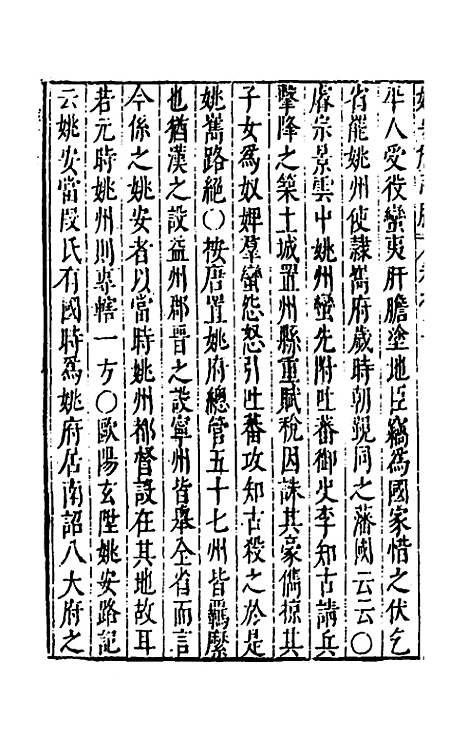 平人受役蠻夷肝膽塗地臣竊為國家惜之伏乞
省罷姚州使隷嶲府歲時朝覲同之藩國云云〇
睿宗景雲中姚州蠻先附吐蕃御史李知古請兵
擊降之築土城置州縣重賦稅因誅其豪儁掠其
子女為奴婢羣蠻怨怒引吐蕃攻知古殺之於是
姚嶲路絕〇按唐置姚府總管五十七州皆羈縻
也猶漢之設益州郡晉之設寧州皆舉全省而言
今係之姚安者以當時姚州都督設在其地故耳
若元時姚州則專轄一方〇歐陽玄陞姚安路記
云姚安當段氏有國時為姚府居南詔八大府之